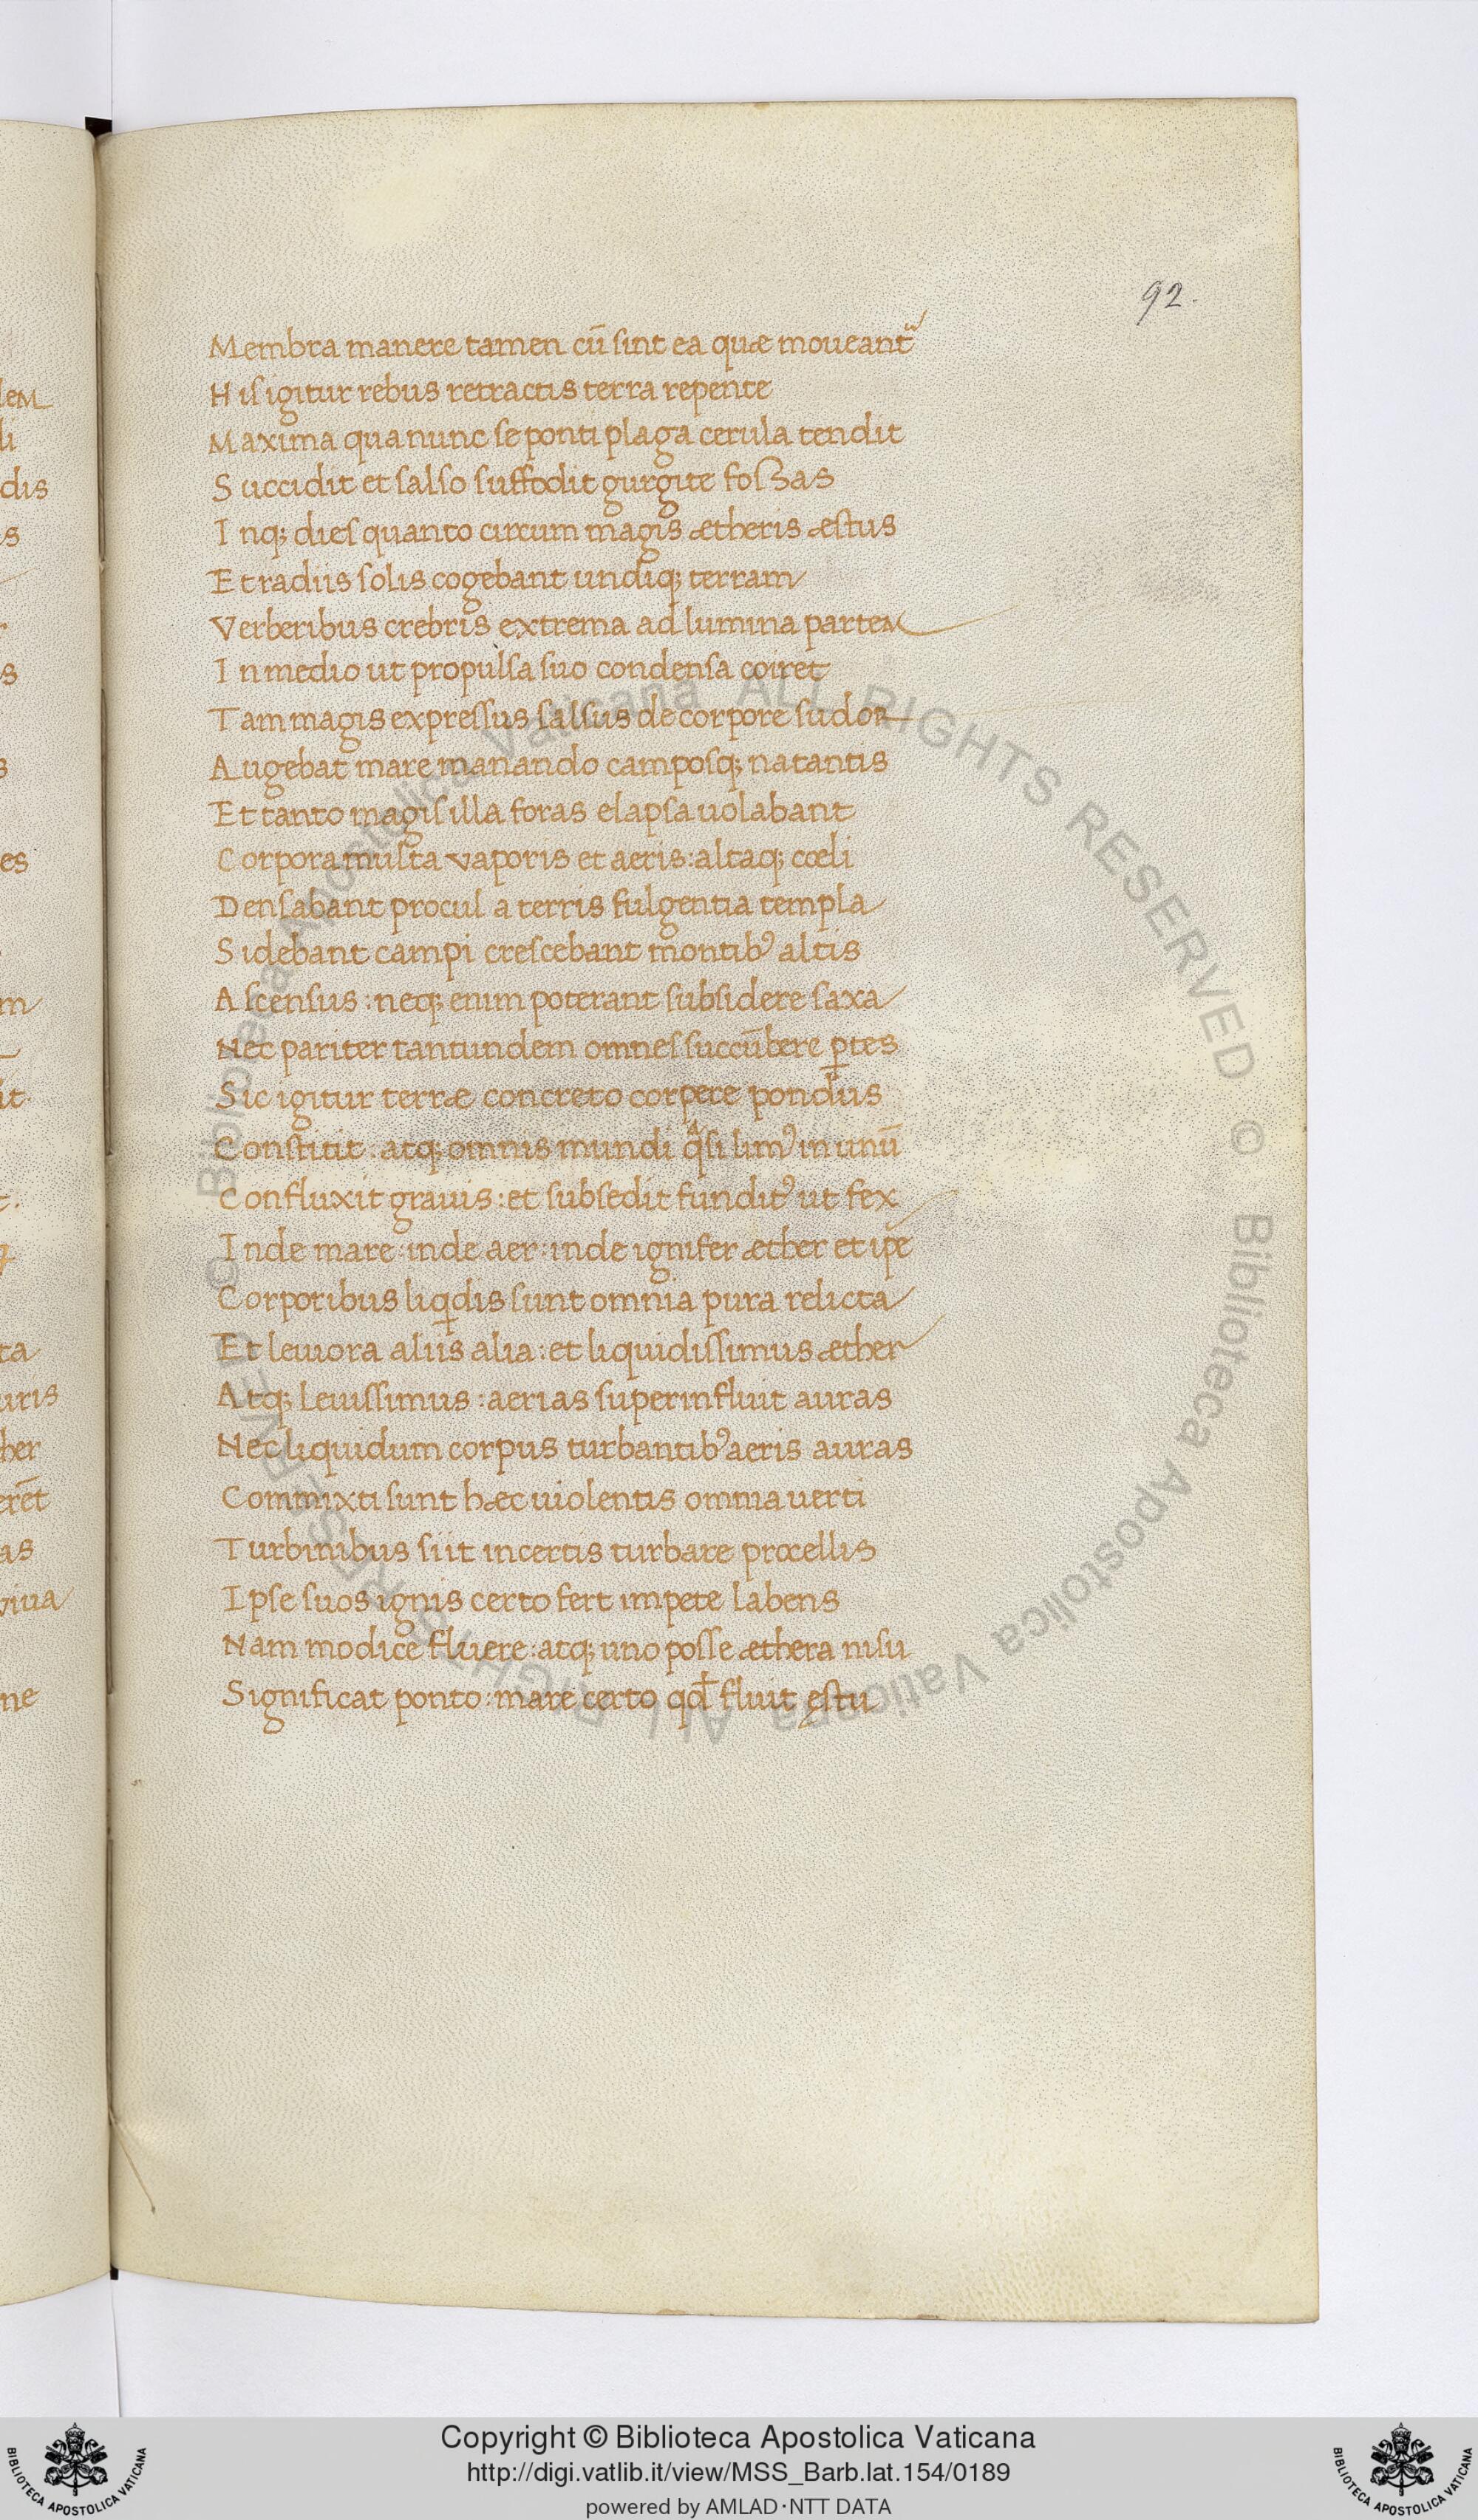 92.
Membra manere tamen cū sint ea quæ moueantᷣ
His igitur rebus retractis terra repente
Maxima qua nunc se ponti plaga cerula tendit
Succidit et salso suffodit gurgite fossas
Inq; dies quanto circum magis ætheris æstus
Et radiis solis cogebant undiq; terram
Verberibus crebris extrema ad lumina partem
In medio ut propulsa suo condensa coiret
Tam magis expressus salsus de corpore sudor
Augebat mare manando camposq; natantis
Et tanto magis illa foras elapsa uolabant
Corpora multa vaporis et aeris: altaq; cœli
Densabant procul a terris fulgentia templa
Sidebant campi crescebant montibꝰ altis
Ascensus: neq; enim poterant subsidere saxa
Nec pariter tantundem omnes succūbere ꝑtes
Sic igitur terræ concreto corpere pondus
Constitit: atq; omnis mundi qᵃsi limꝰ in unū
Confluxit grauis: et subsedit funditꝰ ut fex
Inde mare: inde aer: inde ignifer æther et ip̄e
Corporibus liqͥdis sunt omnia pura relicta
Et leuiora aliis alia: et liquidissimus æther
Atq; leuissimus: aerias superinfluit auras
Nec liquidum corpus turbantibꝰ aeris auras
Commixti sunt hæc uiolentis omnia uerti
Turbinibus siit incertis turbare procellis
Ipse suos ignis certo fert impete labens
Nam modice fluere: atq; uno posse æthera nisu
Significat ponto: mare certo qđ fluit ęstu
lem
li
dis
s
s
es
m
it.
t.
ta
uris
her
erēt
as
viua
ne
© Biblioteca Apostolica Vaticana ALL RIGHTS RESERVED © Biblioteca Apostolica Vaticana ALL RIGHTS RESERVED
Copyright © Biblioteca Apostolica Vaticana
http://digi.vatlib.it/view/MSS_Barb.lat.154/0189
powered by AMLAD·NTT DATA
BIBLIOTECA APOSTOLICA VATICANA
BIBLIOTECA APOSTOLICA VATICANA